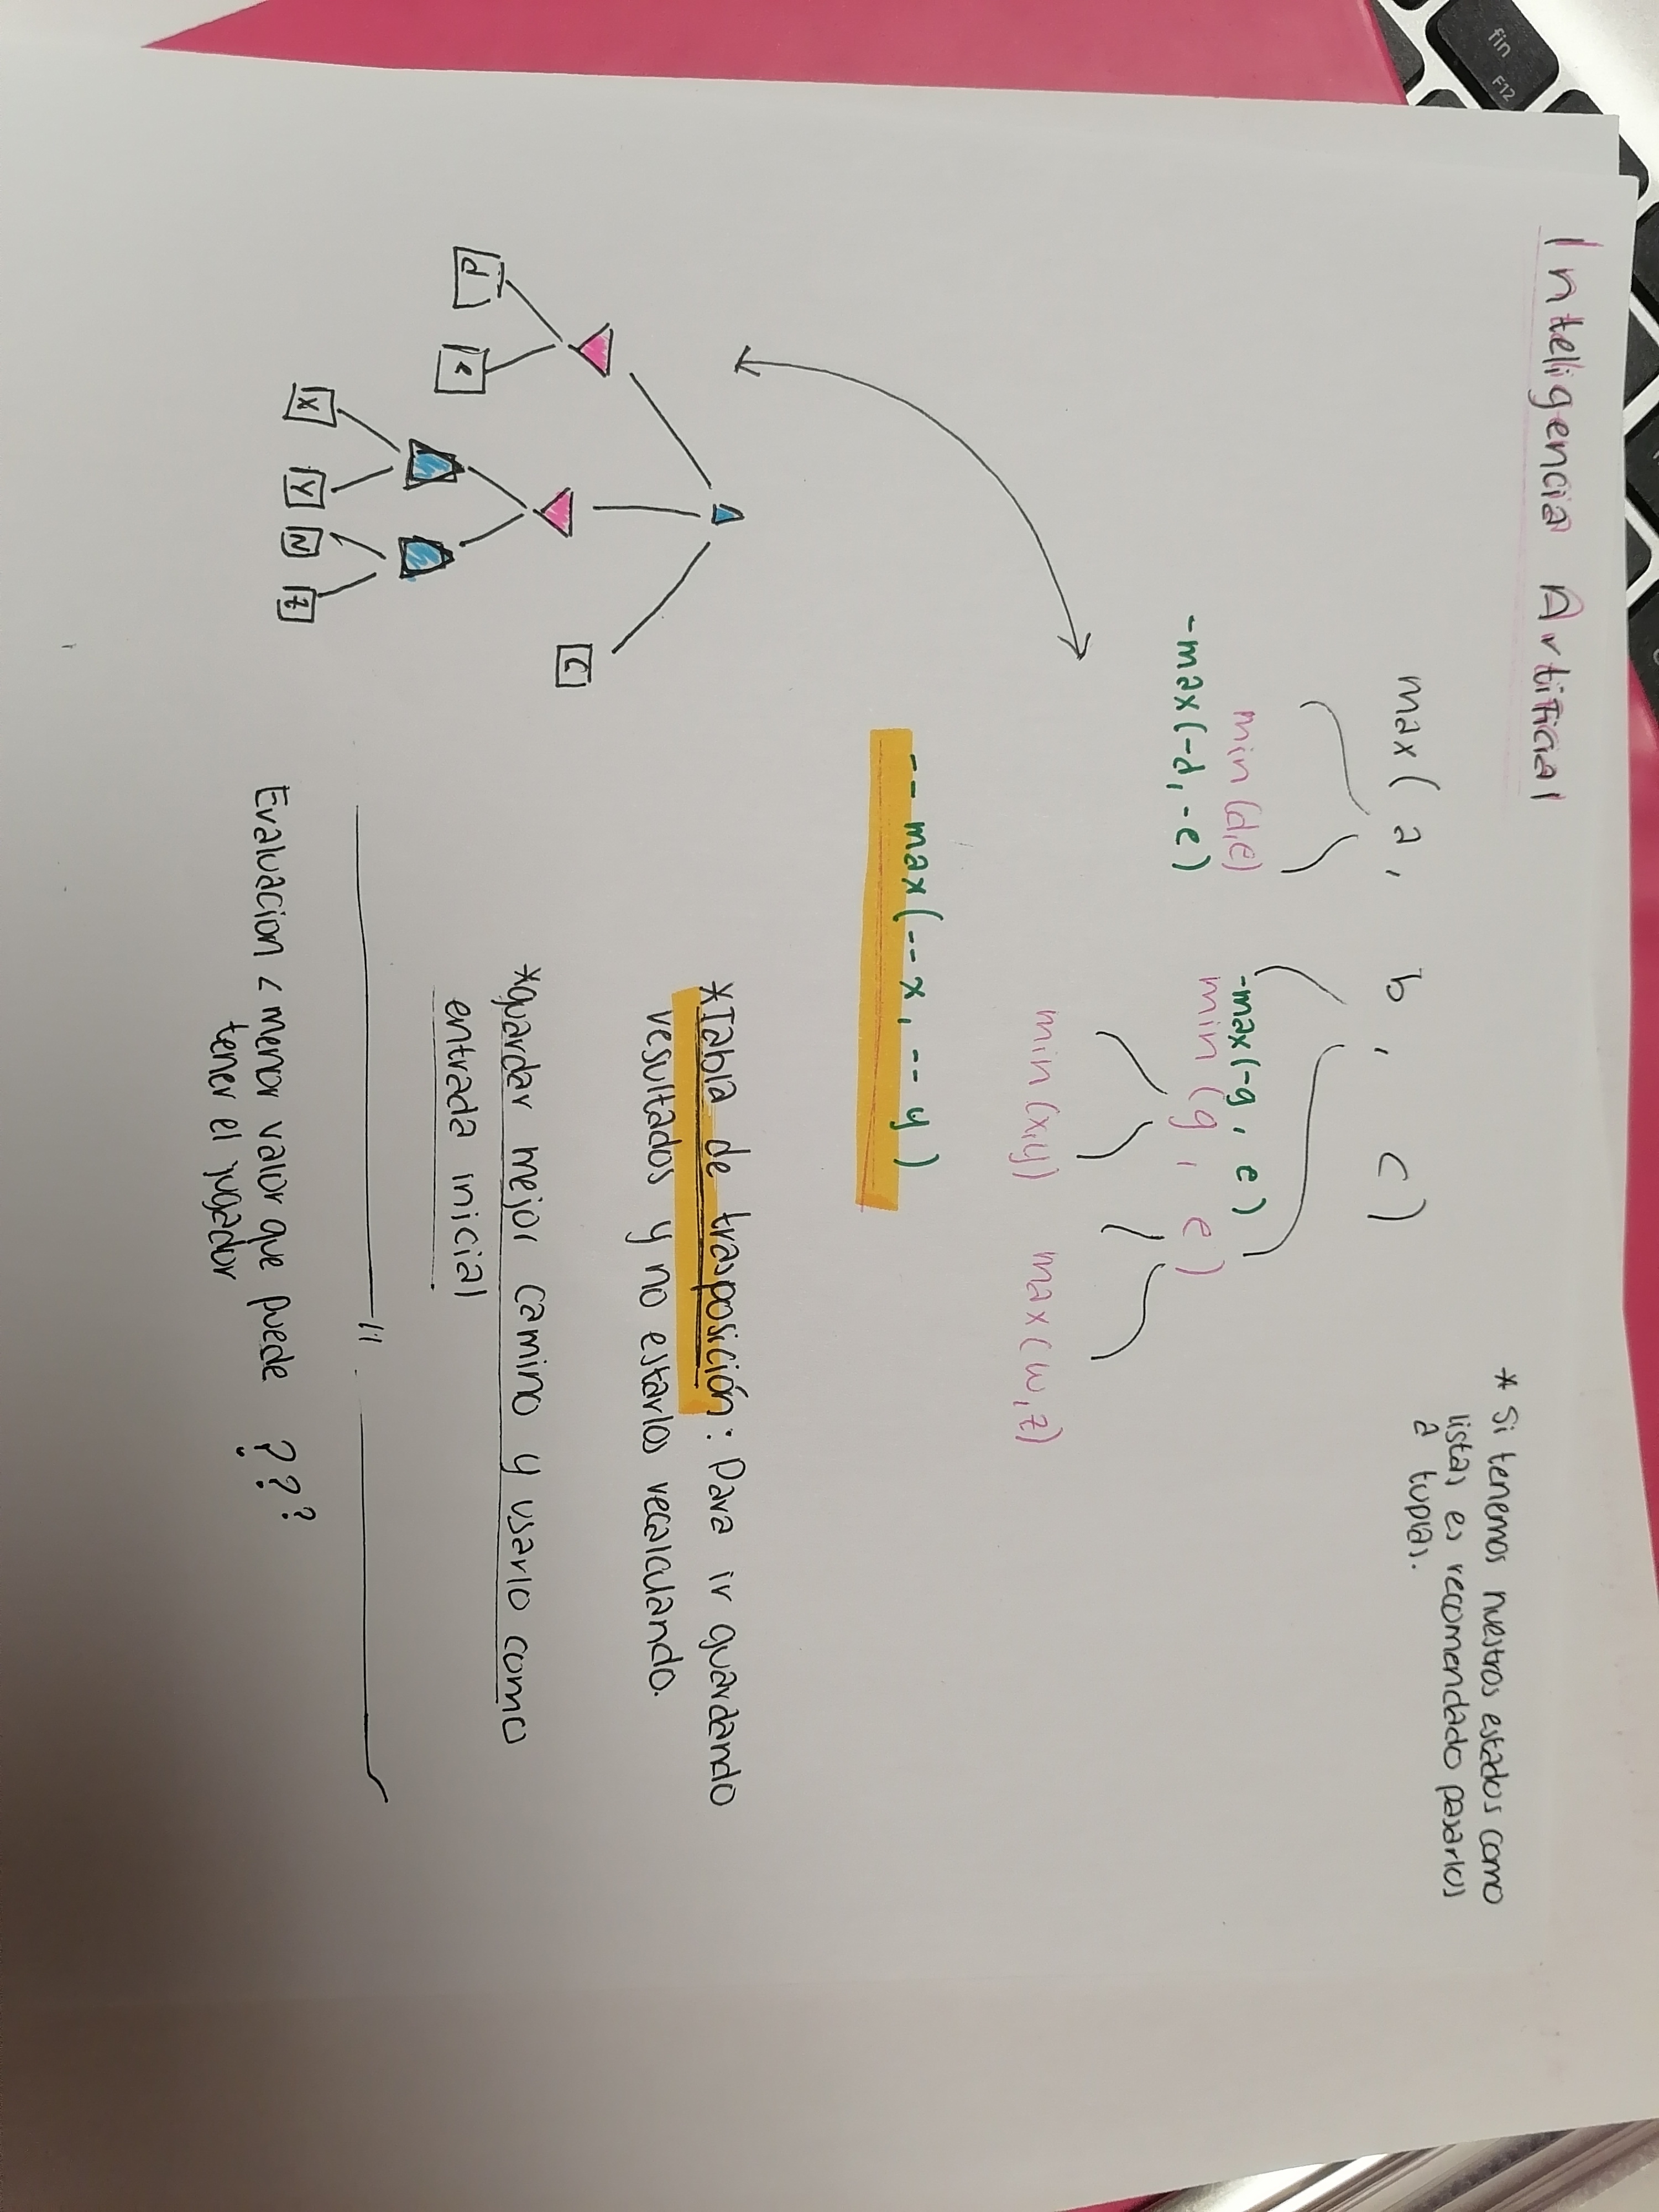 fin
F12
Inteligencia Artificial
* Si tenemos nuestros estados como
listas es recomendado pasarlos
a tuplas.
max( a, b, c)
min (d,e)
-max(-g, e)
-max(-d, -e)
min (g, e)
min (x,y) max(w,z)
-- max(--x, -- y)
*Tabla de trasposición: Para ir guardando
resultados y no estarlos recalculando.
*guardar mejor camino y usarlo como
entrada inicial
c
d e
x y N z
Evaluacion < menor valor que puede ???
tener el jugador